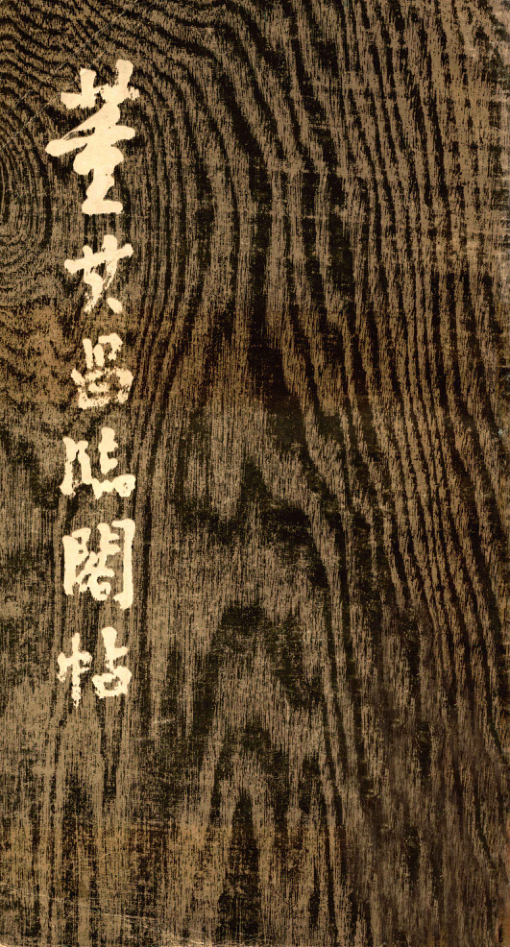 董其昌臨閣帖